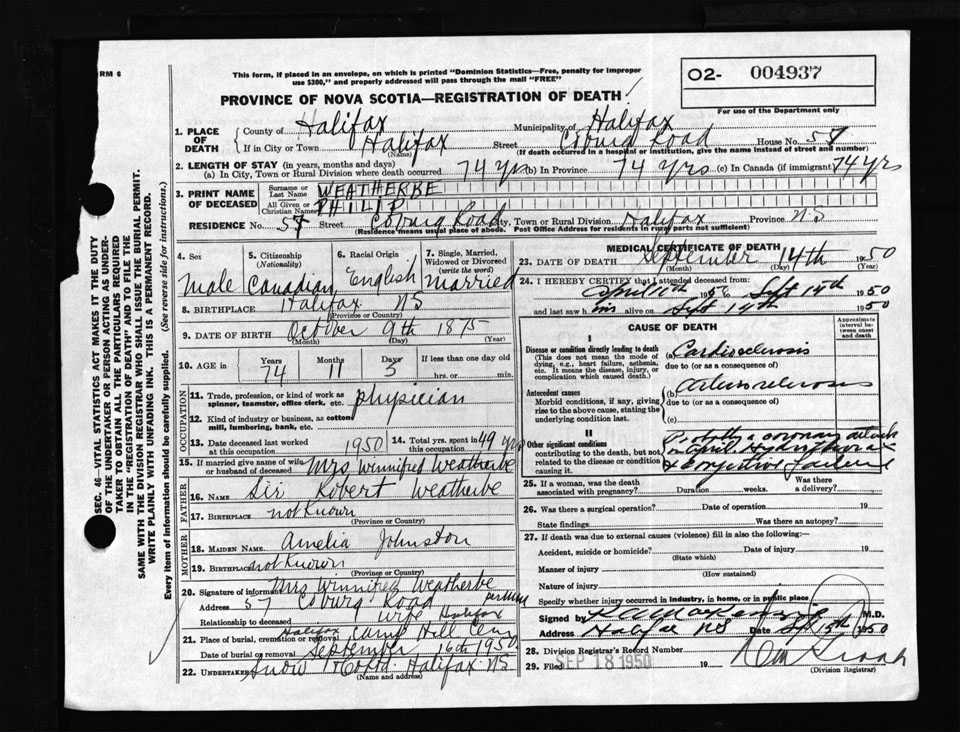 RM 6
This form, if placed in an envelope, on which is printed "Dominion Statistics—Free, penalty for improper
use $300," and properly addressed will pass through the mail "FREE"
PROVINCE OF NOVA SCOTIA—REGISTRATION OF DEATH
O2- 004937
For use of the Department only
1. PLACE OF DEATH
County of Halifax Municipality of Halifax
If in City or Town Halifax Street Coburg Road House No. 57
(Name) (If death occurred in a hospital or institution, give the name instead of street and number)
2. LENGTH OF STAY (in years, months and days)
(a) In City, Town or Rural Division where death occurred 74 yrs (b) In Province 74 yrs (c) In Canada (if immigrant) 74 yrs
3. PRINT NAME OF DECEASED
Surname or Last Name WEATHERBE
All Given or Christian Names PHILIP
RESIDENCE No. 57 Street Coburg Road City, Town or Rural Division Halifax Province N.S
(Residence means usual place of abode. Post Office Address for residents in rural parts not sufficient)
4. Sex Male
5. Citizenship (Nationality) Canadian
6. Racial Origin English
7. Single, Married, Widowed or Divorced (write the word) Married
8. BIRTHPLACE Halifax NS
(Province or Country)
9. DATE OF BIRTH October 9th 1875
(Month) (Day) (Year)
10. AGE in Years 74 Months 11 Days 3 If less than one day old hrs. or min.
OCCUPATION
11. Trade, profession, or kind of work as spinner, teamster, office clerk, etc. physician
12. Kind of industry or business, as cotton mill, lumbering, bank, etc.
13. Date deceased last worked at this occupation 1950
14. Total yrs. spent in this occupation 49 yrs
15. If married give name of wife or husband of deceased Mrs Winnifred Weatherbe
FATHER
16. NAME Sir Robert Weatherbe
17. BIRTHPLACE not Known
(Province or Country)
MOTHER
18. MAIDEN NAME Amelia Johnston
19. BIRTHPLACE not Known
(Province or Country)
20. Signature of informant Mrs Winnifred Weatherbe
Address 57 Coburg Road Halifax
Relationship to deceased wife
21. Place of burial, cremation or removal Halifax Camp Hill Cem
Date of burial or removal September 16th 1950
22. UNDERTAKER Snow & Co Ltd. Halifax NS
(Name and address)
MEDICAL CERTIFICATE OF DEATH
23. DATE OF DEATH September 14th 1950
(Month) (Day) (Year)
24. I HEREBY CERTIFY that I attended deceased from:
April 1950 to Sept 14th 1950
and last saw him alive on Sept 14th 1950
CAUSE OF DEATH
Approximate interval between onset and death
I
Disease or condition directly leading to death
(This does not mean the mode of dying, e.g., heart failure, asthenia, etc. It means the disease, injury, or complication which caused death.)
(a) Cardiosclerosis
due to (or as a consequence of)
Antecedent causes
Morbid conditions, if any, giving rise to the above cause, stating the underlying condition last.
(b) Arteriosclerosis
due to (or as a consequence of)
(c)
II
Other significant conditions
contributing to the death, but not related to the disease or condition causing it.
Probably a coronary attack
in April. Hydrothorax
& Congestive failure
25. If a woman, was the death associated with pregnancy? Duration weeks. Was there a delivery?
26. Was there a surgical operation? Date of operation 19
State findings Was there an autopsy?
27. If death was due to external causes (violence) fill in also the following:—
Accident, suicide or homicide? Date of injury 19
(State which)
Manner of injury
(How sustained)
Nature of injury
Specify whether injury occurred in industry, in home, or in public place
Signed by M.D.
Address Halifax NS Date 1950
28. Division Registrar's Record Number
29. Filed SEP 18 1950 19
(Division Registrar)
SEC. 46—VITAL STATISTICS ACT MAKES IT THE DUTY
OF THE UNDERTAKER OR PERSON ACTING AS UNDER-
TAKER TO OBTAIN ALL THE PARTICULARS REQUIRED
IN THE "REGISTRATION OF DEATH" AND TO FILE THE
SAME WITH THE DIVISION REGISTRAR WHO SHALL ISSUE THE BURIAL PERMIT.
WRITE PLAINLY WITH UNFADING INK. THIS IS A PERMANENT RECORD.
Every item of information should be carefully supplied. (See reverse side for instructions.)